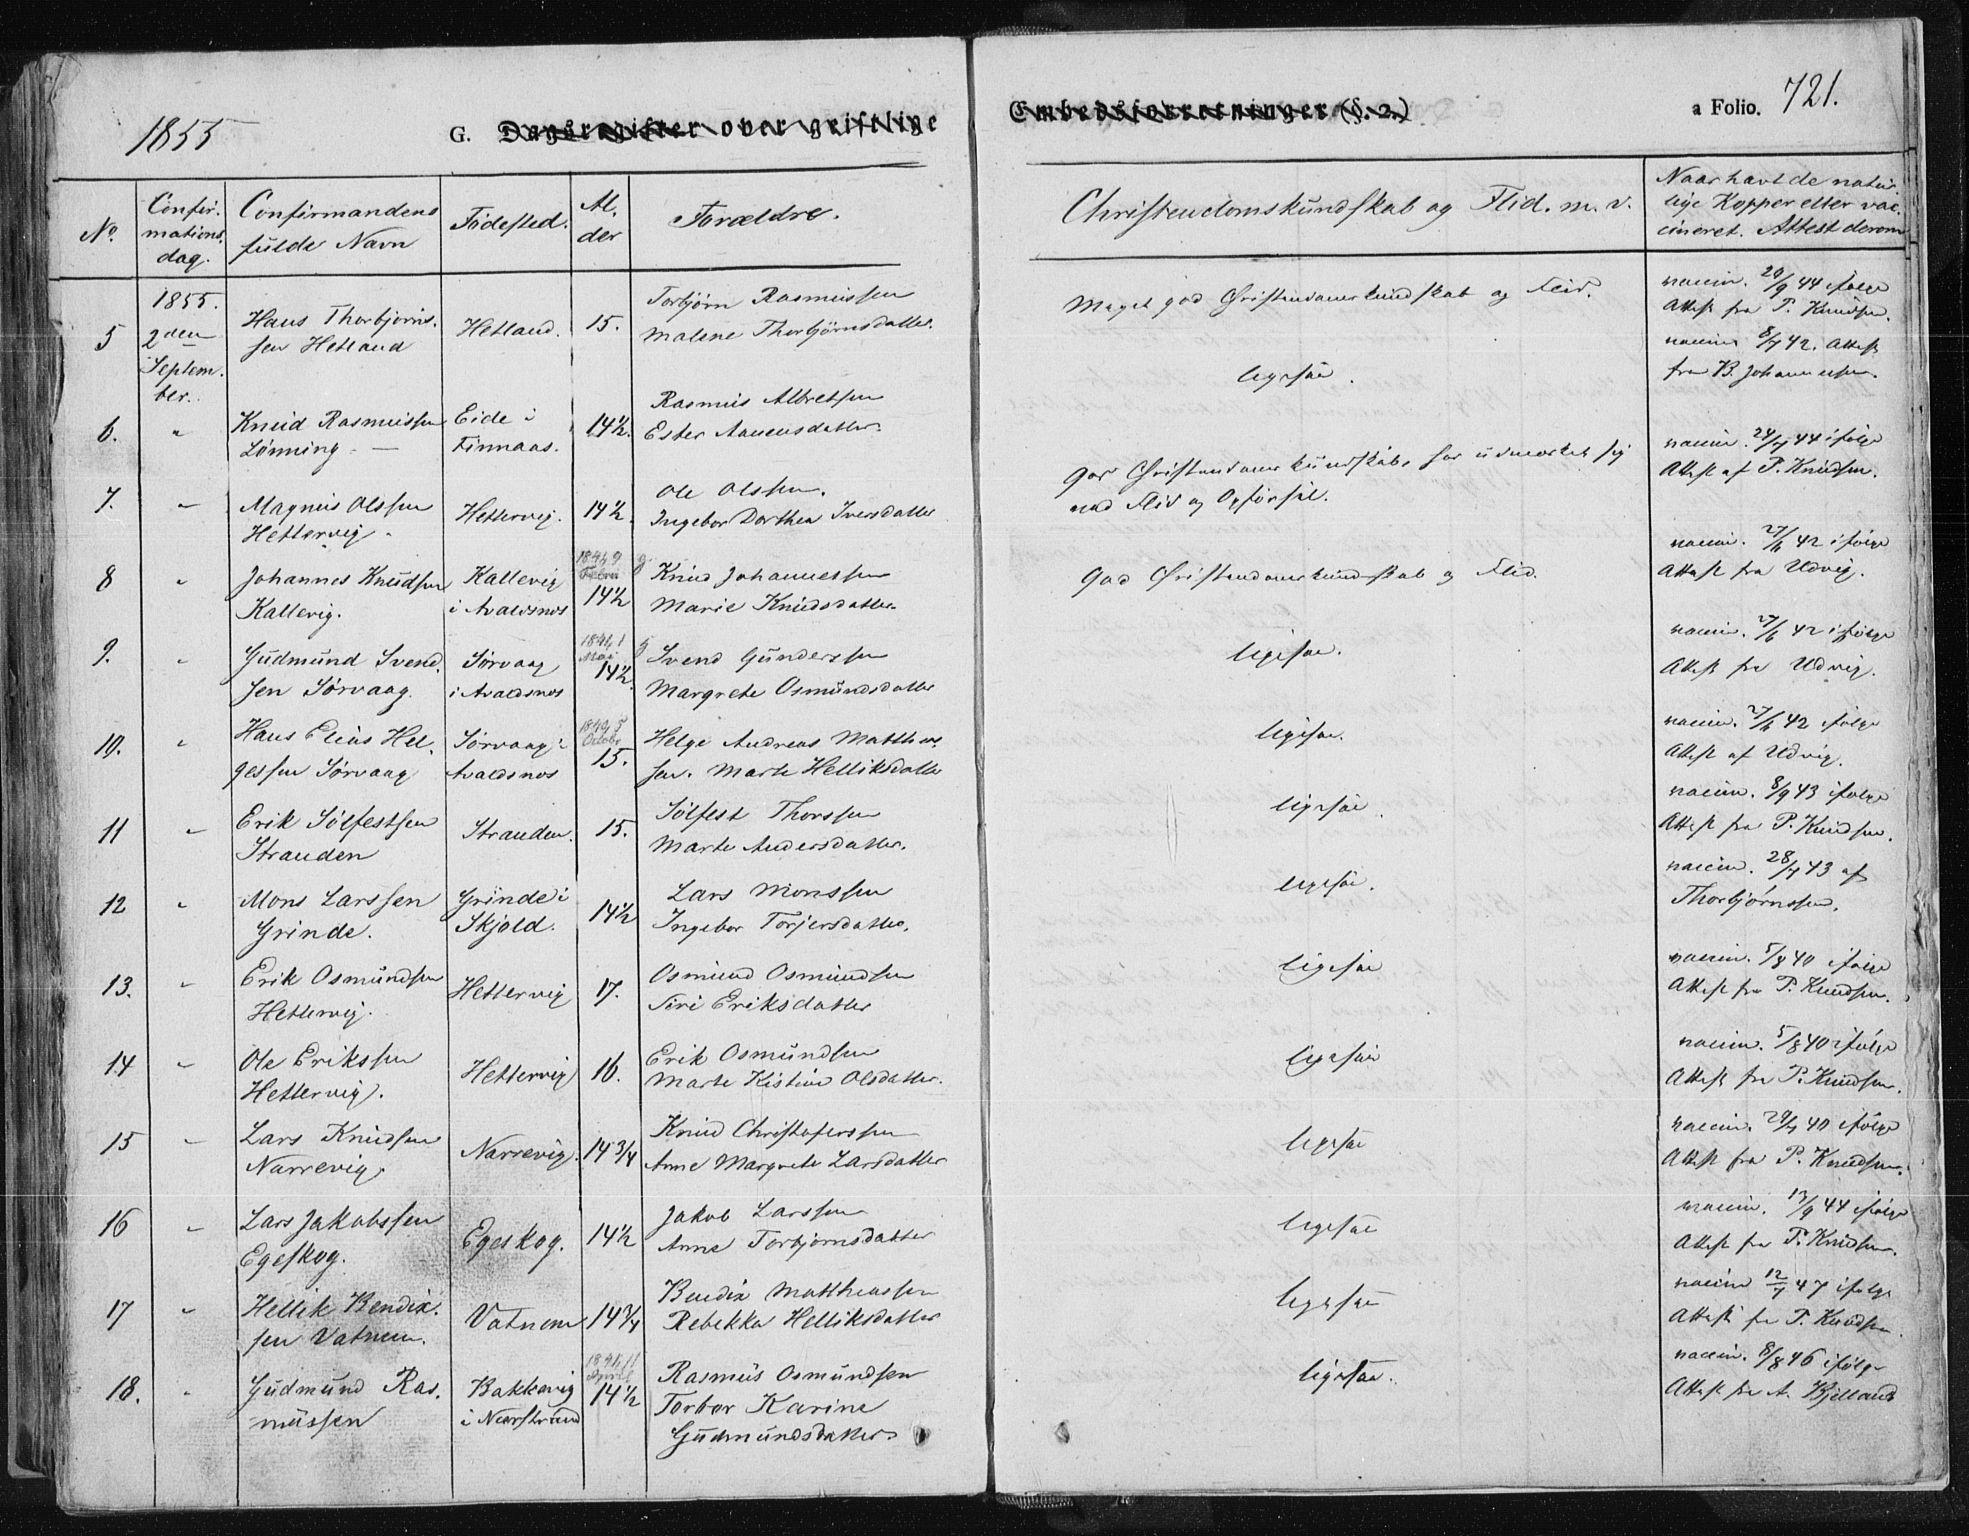 1855
G. Dagsregister over geistlige
Embedsforretninger (§. 2.)
a Folio. 721.
No.
Confir-
mations-
dag.
Confirmandens
fulde Navn
Fødested.
Al-
der
Forældre.
Christendomskundskab og Flid. m. v.
Naar havt de natur-
lige Kopper eller vac-
cineret. Attest derom
5
1855.
2den
Septem-
ber.
Hans Thorbjørns-
sen Hetland
Hetland.
15.
Torbjørn Rasmussen
Malene Thorbjørnsdatter.
Meget god Christendomskundskab og Flid.
vaccin. 20/9 44 ifølge
Attest fra P. Knudsen.
6.
"
Knud Rasmussen
Lønning. —
Eide i
Finnaas.
14½.
Rasmus Albretsen
Ester Aanensdatter.
ligesaa.
vaccin. 8/7 42. Attest
fra B. Johannessen.
7.
"
Magnus Olssen
Hettervig.
Hettervig.
14½.
Ole Olssen.
Ingebor Dorthea Iversdatter
god Christendomskundskab, har udmærket sig
ved Flid og Opførsel.
vaccin. 24/7 44 ifølge
Attest af P. Knudsen.
8
"
Johannes Knudsen
Kallevig.
Kallevig
i Avaldsnes
1841, 9
Febru
14½
Knud Johannessen
Marie Knudsdatter.
God Christendomskundskab og Flid.
vaccin. 27/6 42 ifølge
Attest fra Udvig.
9.
"
Gudmund Svend-
sen Sørvaag.
Sørvaag
i Avaldsnes
1841, 1
Mai
14½.
Svend Gunderssen
Margrete Osmundsdatter
ligesaa.
vaccin. 27/6 42 ifølge
Attest fra Udvig.
10.
"
Hans Elias Hel-
gessen Sørvaag
Sørvaag i
Avaldsnes
1840, 5
Octobr
15.
Helge Andreas Matthias-
sen. Marte Helliksdatter
ligesaa.
vaccin. 27/6 42 ifølge
Attest af Udvig.
11
"
Erik Sølfestsen
Stranden
Stranden.
15.
Sølfest Thorssen
Marte Andersdatter.
ligesaa.
vaccin. 8/9 43 ifølge
Attest fra P. Knudsen.
12
"
Mons Larssen
Grinde.
Grinde i
Skjold.
14½
Lars Monssen
Ingebor Torjersdatter.
ligesaa.
vaccin. 28/7 43 af
Thorbjørnssen.
13.
"
Erik Osmundsen
Hettervig.
Hettervig
17.
Osmund Osmundsen
Siri Eriksdatter
ligesaa
vaccin. 5/8 40 ifølge
Attest fra P. Knudsen.
14
"
Ole Erikssen
Hettervig.
Hettervig
16.
Erik Osmundsen
Marte Kistine Olsdatter.
ligesaa
vaccin. 5/8 40 ifølge
Attest fra P. Knudsen.
15
"
Lars Knudsen
Narrevig.
Narrevig.
14 3/4
Knud Christoferssen
Anne Margrete Larsdatter
ligesaa
vaccin. 24/7 40 ifølge
Attest fra P. Knudsen.
16
"
Lars Jakobssen
Egeskog.
Egeskog.
14½
Jakob Larssen
Anne Torbjørnsdatter
ligesaa
vaccin. 13/9 44 ifølge
Attest fra P. Knudsen.
17
"
Hellik Bendix-
sen Vatnem.
Vatnem
14 3/4
Bendix Matthiassen
Rebekka Helliksdatter
ligesaa
vaccin 12/7 47 ifølge
Attest fra P. Knudsen.
18.
"
Gudmund Ras-
mussen
Bakkevig
i Nærstrand
1841, 11
April
14½
Rasmus Osmundsen
Torbor Karine
Gudmundsdatter
ligesaa.
vaccin. 8/8 46 ifølge
Attest fra A. Kjelland